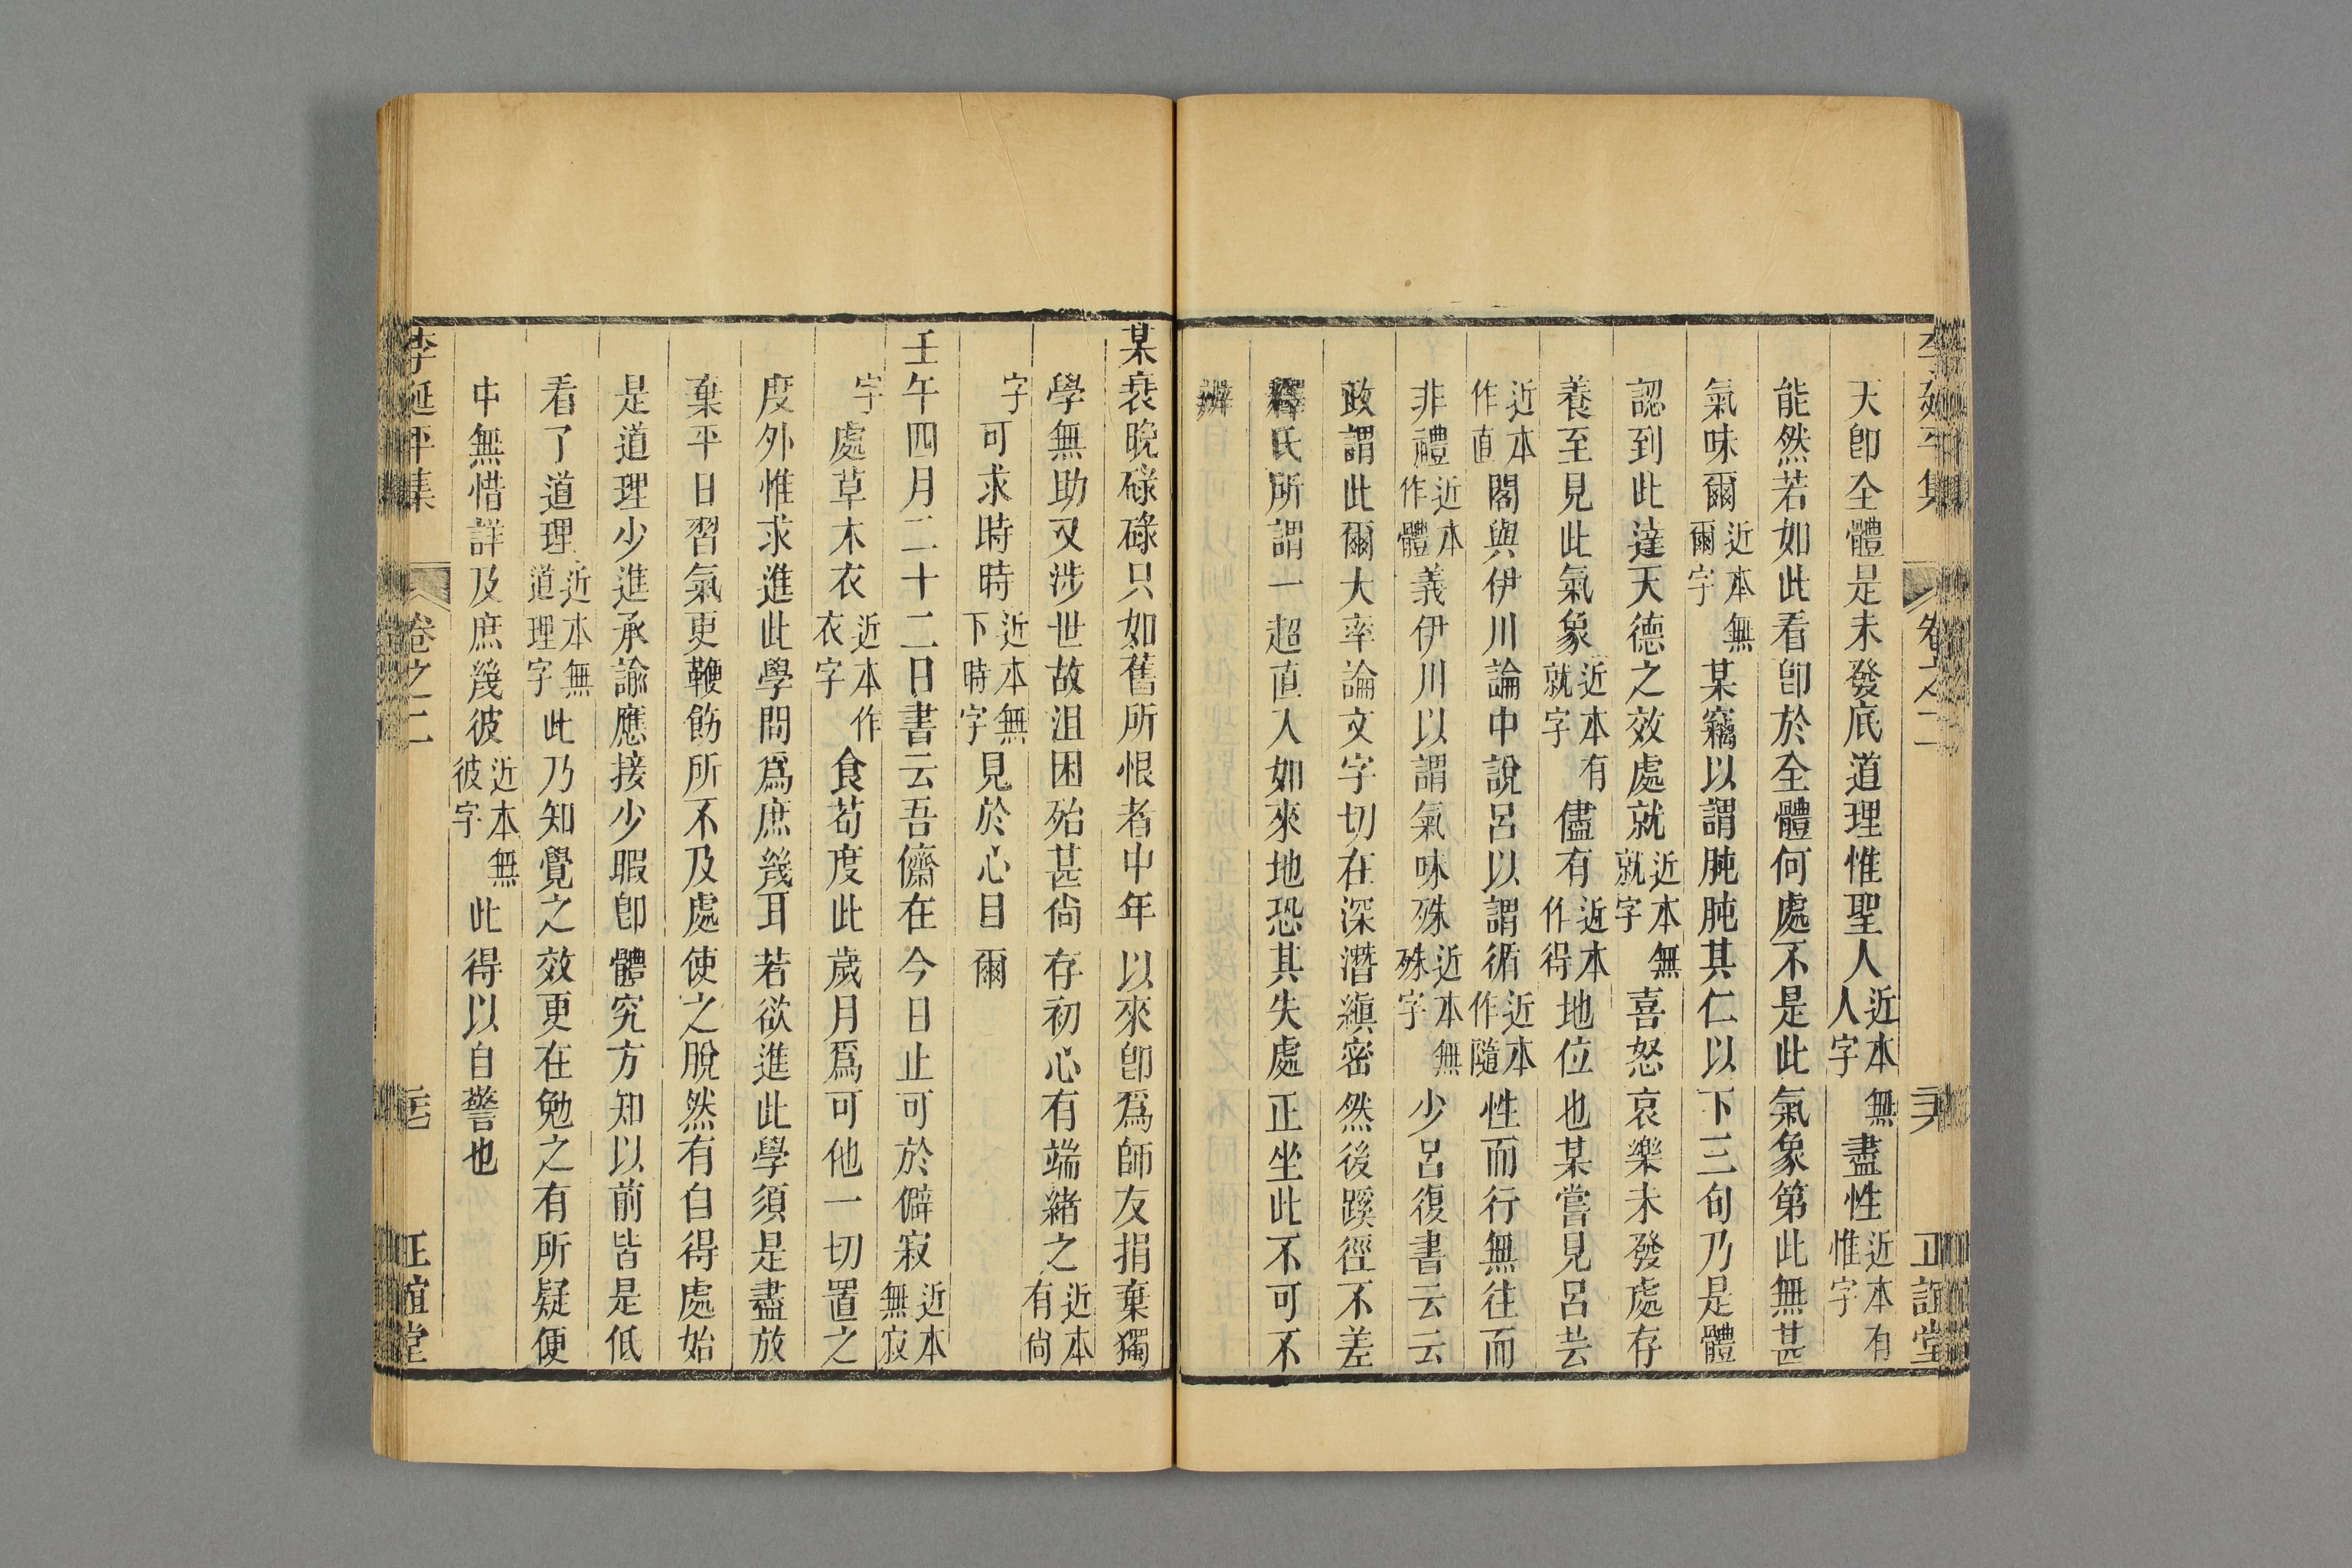 天卽全體是未發底道理惟聖人近本無人字盡性近本有惟字
能然若如此看卽於全體何處不是此氣象第此無甚
氣味爾近本無爾字某竊以謂肫肫其仁以下三句乃是體
認到此達天德之效處就近本無就字喜怒哀樂未發處存
養至見此氣象近本有就字儘有近本作得地位也某嘗見呂芸
近本作直閣與伊川論中說呂以謂循近本作隨性而行無往而
非禮近本作體義伊川以謂氣味殊近本無殊字少呂復書云云
政謂此爾大率論文字切在深潛縝密然後蹊徑不差
釋氏所謂一超直入如來地恐其失處正坐此不可不
辨
某衰晚碌碌只如舊所恨者中年以來卽爲師友捐棄獨
學無助又涉世故沮困殆甚尙存初心有端緒之近本有尙
字可求時時近本無下時字見於心目爾
壬午四月二十二日書云吾儕在今日止可於僻寂近本無寂
字處草木衣近本作衣字食苟度此歲月爲可他一切置之
度外惟求進此學問爲庶幾耳若欲進此學須是盡放
棄平日習氣更鞭飭所不及處使之脫然有自得處始
是道理少進承諭應接少暇卽體究方知以前皆是低
看了道理近本無道理字此乃知覺之效更在勉之有所疑便
中無惜詳及庶幾彼近本無彼字此得以自警也
李延平集 卷之二 正誼堂